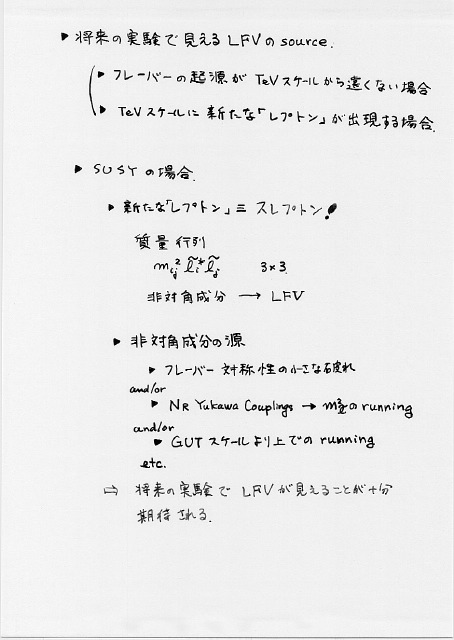 ▶ 将来の実験で見える LFV の source.
▶ フレーバーの起源が TeVスケールから遠くない場合
▶ TeVスケールに新たな「レプトン」が出現する場合.
▶ SUSY の場合.
▶ 新たな「レプトン」≡ スレプトン!
質量行列
m²ij l̃i* l̃j 3×3
非対角成分 → LFV
▶ 非対角成分の源
▶ フレーバー対称性の小さな破れ
and/or
▶ NR Yukawa Couplings → m²l̃ の running
and/or
▶ GUT スケールより上での running
etc.
⇒ 将来の実験で LFV が見えることが十分
期待される.